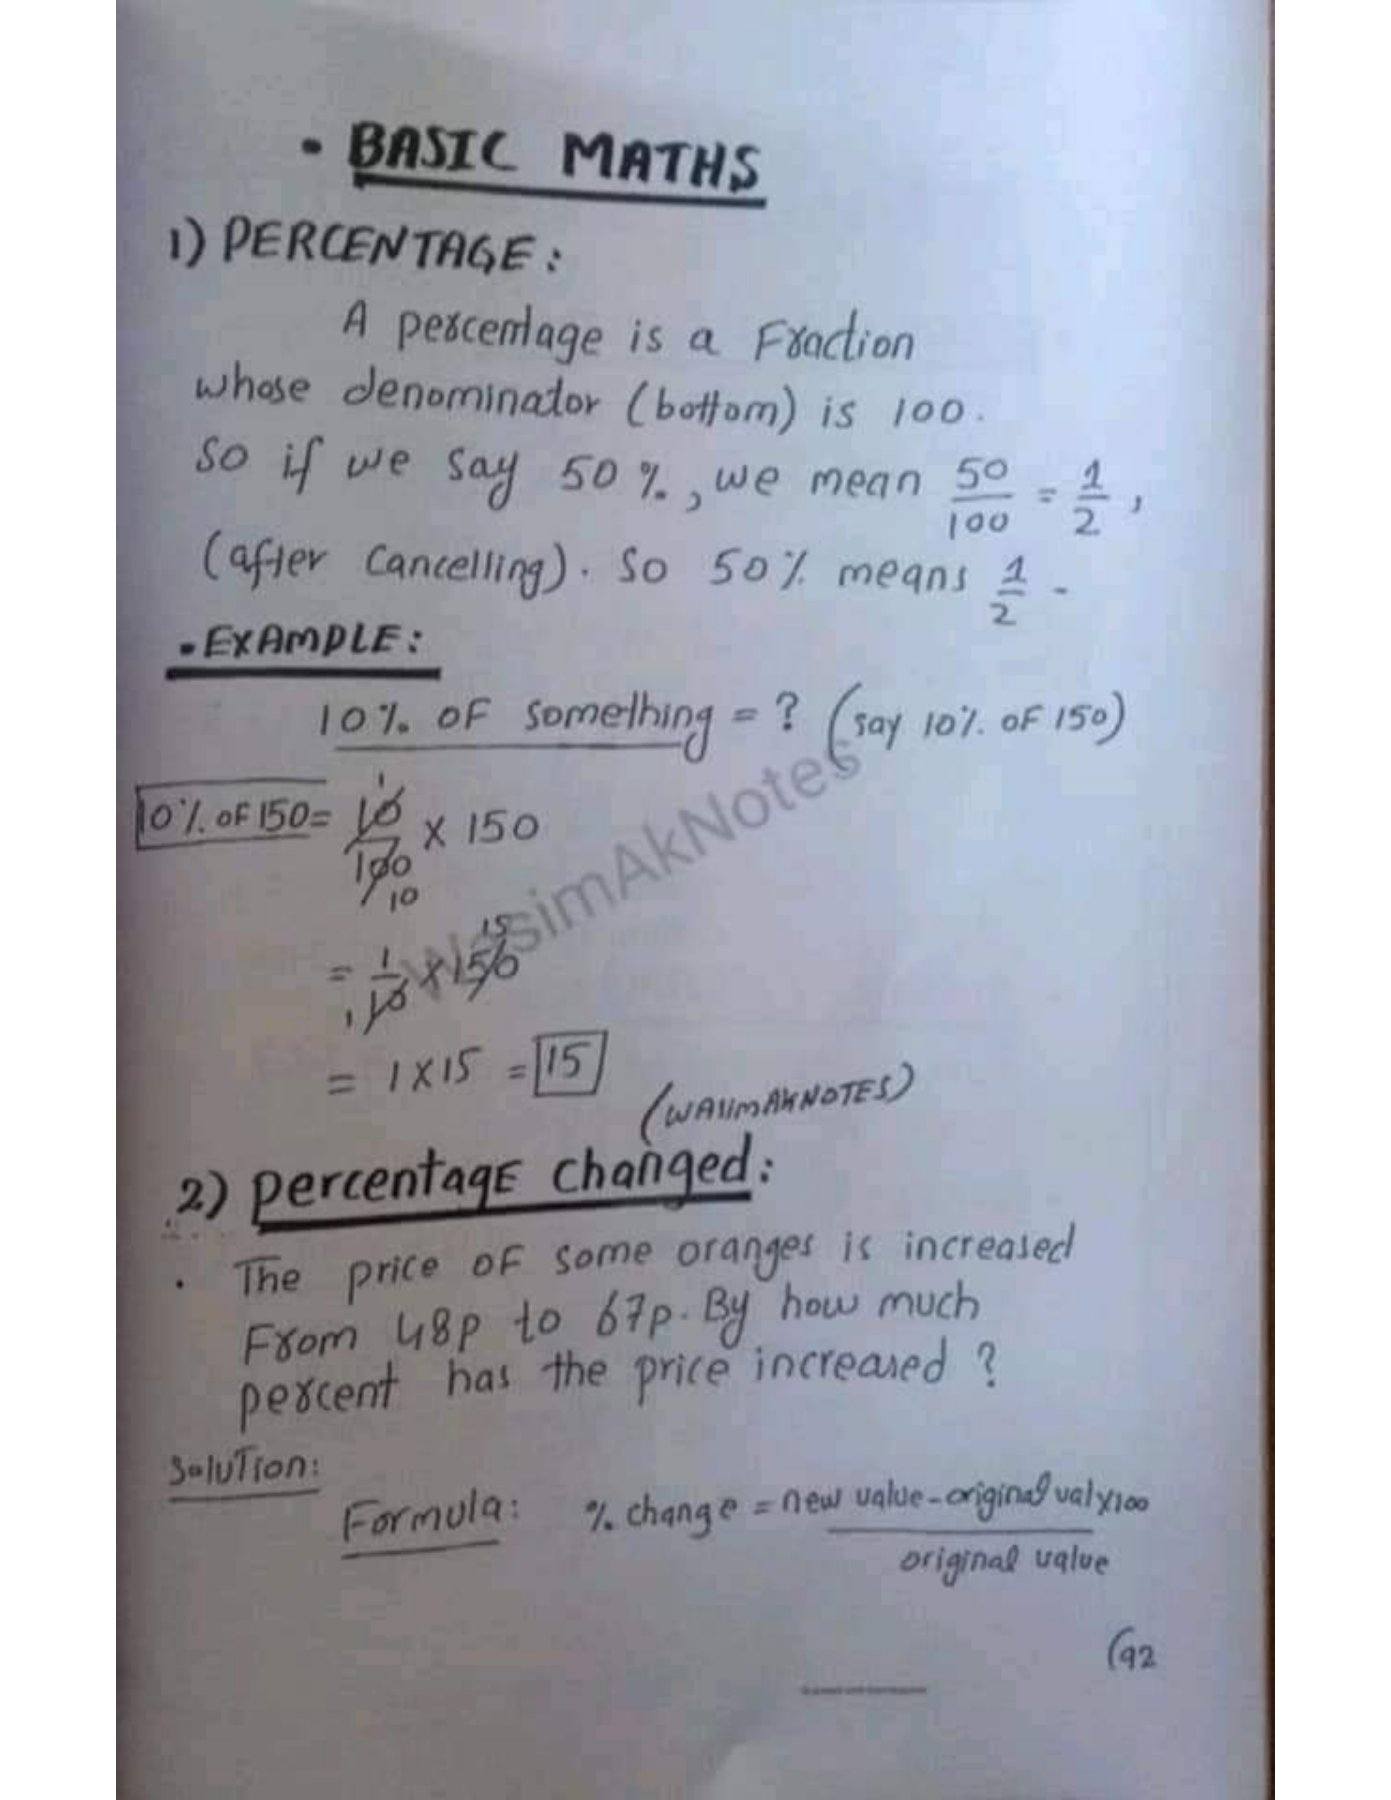 • BASIC MATHS
1) PERCENTAGE:
A percentage is a Fraction
whose denominator (bottom) is 100.
So if we say 50%, we mean 50/100 = 1/2,
(after cancelling). So 50% means 1/2 -
• EXAMPLE:
10% OF something = ? (say 10% OF 150)
10% OF 150 = 10/100 × 150
1
10
= 1/10 × 150
15
1
= 1 × 15 = 15
WasimAkNotes
(WASIMAKNOTES)
2) percentage changed:
• The price OF some oranges is increased
From 48p to 67p. By how much
percent has the price increased ?
Solution:
Formula: % change = new value - original val × 100 / original value
(92